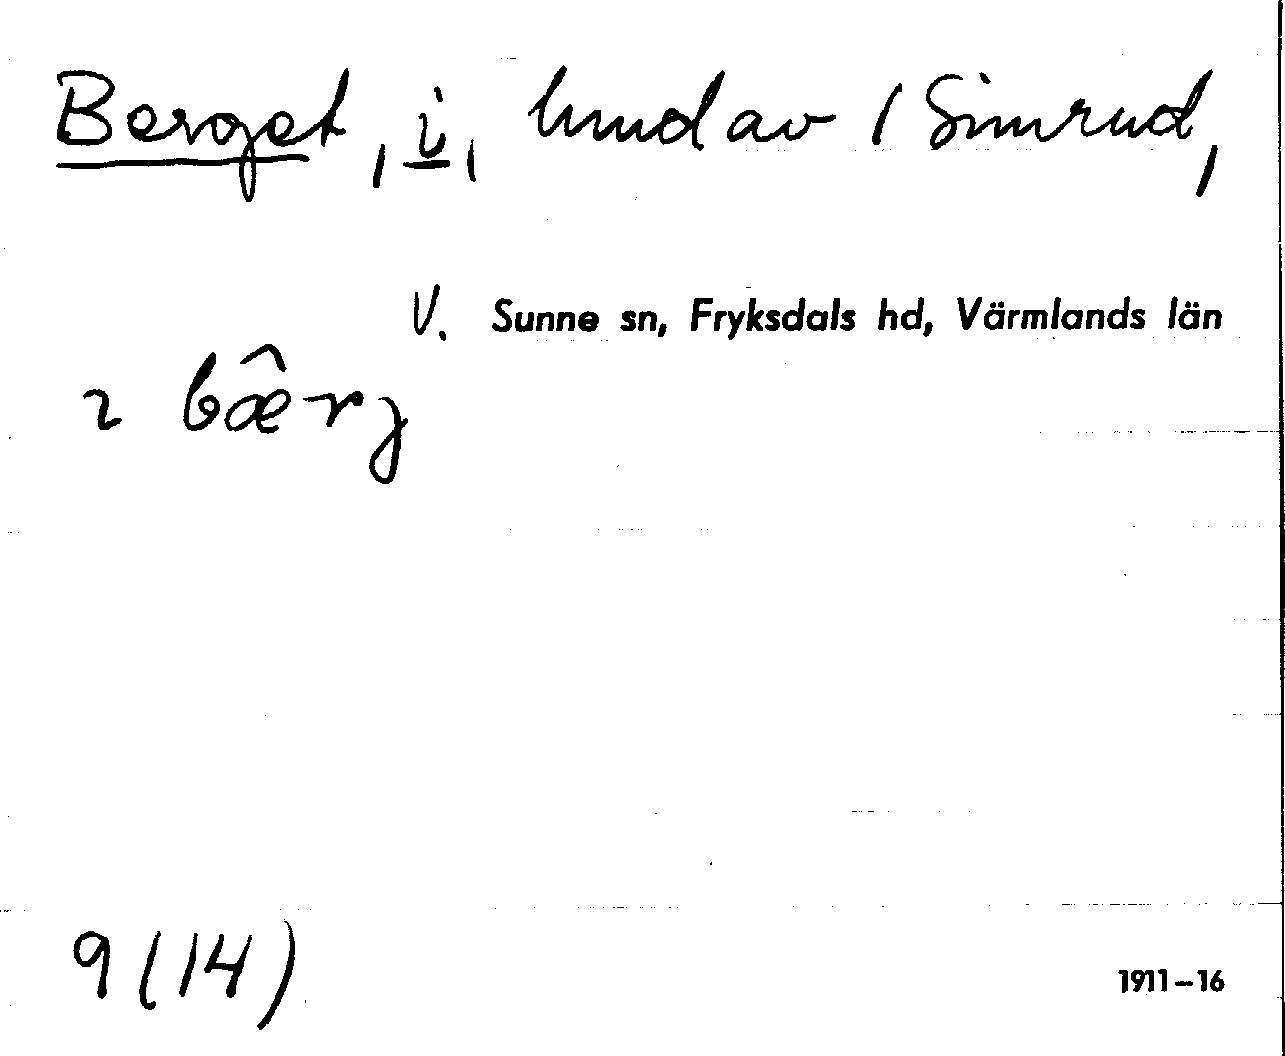 Berget, i, hmd av 1 Simrud,
V. Sunne sn, Fryksdals hd, Värmlands län
ɩ bæ̂rj
9(14)
1911–16